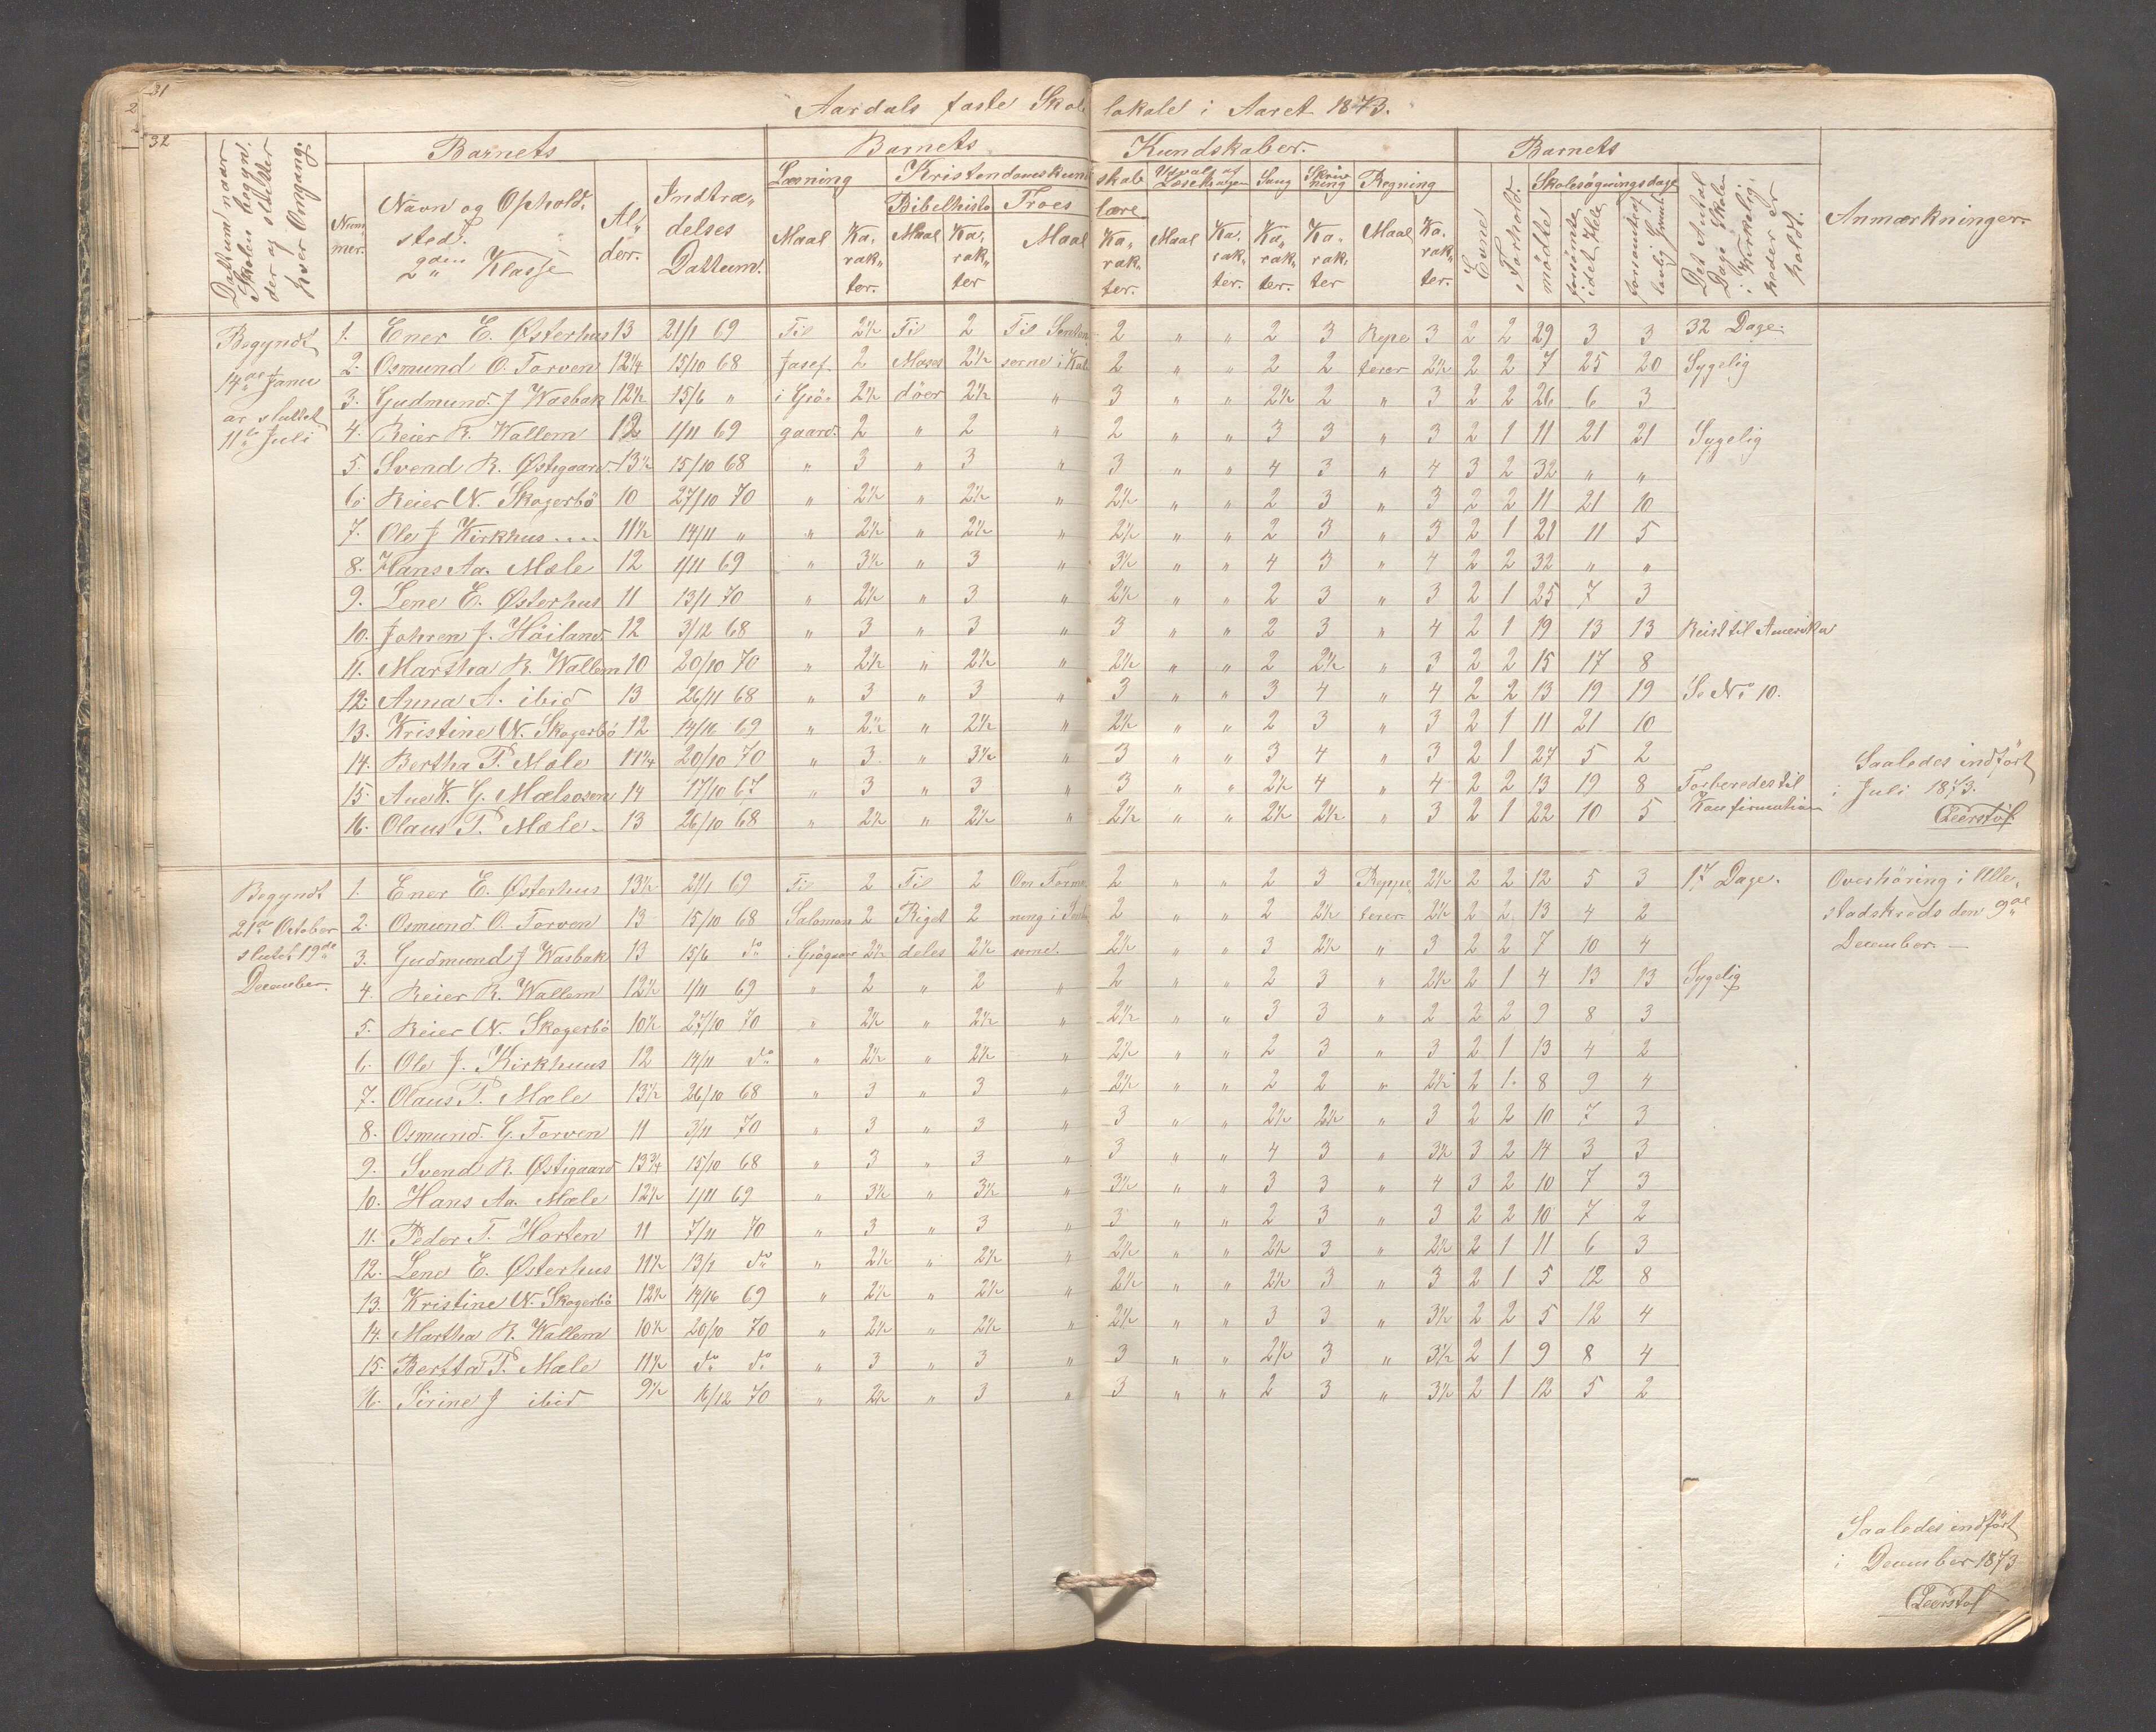 31
2
32
Aardals faste Skole lokale i Aaret 1873.
Dattum naar Skolen begyn, der og slutter hver Omgang.
Barnets
Barnets
Kundskaber.
Barnets
Anmærkninger
Num mer.
Navn og Ophold, sted. 2den Klasse
Al, der.
Indtræ, delses Dattum.
Læsning
Kristendomskund skab
Udvalg af Læsebogen
Sang
Skriv ning
Regning
Evne
Forhold.
Skolesøgningsdage
Det Antal Dage Skolen i Virkelig, heden er holdt.
Maal
Ka, rak, ter.
Bibelhisto
Maal
Ka, rak, ter
Troes lære
Maal
Ka, rak, ter.
Maal
Ka, rak, ter.
Ka, rak, ter.
Ka, rak, ter
Maal
Ka, rak, ter.
mødte
forsømte i det Hele
forsømte af lovlig Grund
Begyndt 14de Janu ar sluttet 11te Juli
1. Ener E. Østerhus 13 21/1 69 Til 2½ Til 2 Til 2 " " 2 3 Repe 3 2 2 29 3 3 32 Dage.
2. Osmund O. Torven 12¼ 15/10 68 Josef 2 Moses 2½ serne i 2 " " 2 2 terer 2½ 2 2 7 25 20 Sygelig
3. Gudmund J Wasbak 12½ 15/6 " i Giö- 2½ döer 2½ " 3 " " 2½ 2 " 3 2 2 26 6 3
4. Reier R. Wallem 12 1/11 69 gaard. 2 " 2 " 2 " " 3 3 " 3 2 1 11 21 21 Sygelig
5. Svend R. Østigaard 13½ 15/10 68 " 3 " 3 " 3 " " 4 3 " 4 3 2 32 " "
6. Reier N. Skogerbö 10 27/10 70 " 2½ " 2½ " 2½ " " 2 3 " 3 2 2 11 21 10
7. Ole J Kirkhus.... 11½ 14/11 " " 2½ " 2½ " 2½ " " 2 3 " 3 2 1 21 11 5
8. Hans Aa. Mæle 12 1/11 69 " 3½ " 3 " 3½ " " 4 3 " 4 2 2 32 " "
9. Lene E. Østerhus 11 13/1 70 " 2½ " 3 " 2½ " " 2 3 " 3 2 1 25 7 3
10. Johren J. Höiland 12 3/12 68 " 3 " 3 " 3 " " 2 3 " 4 2 1 19 13 13 Reist til Amerika
11. Martha R. Wallem 10 20/10 70 " 2½ " 2½ " 2½ " " 2 2½ " 3 2 2 15 17 8
12. Anna A. ibid 13 26/11 68 " 3 " 3 " 3 " " 3 4 " 4 2 2 13 19 19 S. No 10.
13. Kristine N. Skogerbö 12 14/10 69 " 2½ " 2½ " 2½ " " 2 3 " 3 2 1 11 21 10
14. Bertha P. Mæle 11¼ 20/10 70 " 3 " 3½ " 3 " " 3 4 " 3 2 1 27 5 2
15. Ane K. G. Mælsosen 14 17/10 67 " 3 " 3 " 3 " " 2½ 4 " 4 2 2 13 19 8 Forberedes til Konfirmation
16. Olaus P. Mæle 13 26/10 68 " 2½ " 2½ " 2½ " " 2½ 2½ " 3 2 1 22 10 5
Saaledes indfört
i Juli 1873.
Begyndt 21de October slutet 19de December.
1. Ener E. Østerhus 13½ 21/1 69 Til 2 Til 2 Om 2 " " 2 3 Reppe 2½ 2 2 12 5 3 17 Dage.
2. Osmund O. Torven 13 15/10 68 Salomon 2 Riget 2 ning i 2 " " 2 2½ terer 2½ 2 2 13 4 2
3. Gudmund J Wasbak 13 15/6 do 2½ deles 2½ 2½ " " 3 2½ " 3 2 2 7 10 4
4. Reier R. Wallem 12½ 1/11 69 " 2 " 2 " 2 " " 2 3 " 2½ 2 1 4 13 13 Sygelig
5. Reier N. Skogerbö 10½ 27/10 70 " 2½ " 2½ " 2½ " " 3 3 " 2 2 2 9 8 3
6. Ole J. Kirkhuus 12 14/11 do " 2½ " 2½ " 2½ " " 2 3 " 3 2 1 13 4 2
7. Olaus P. Mæle 13½ 26/10 68 " 3 " 3 " 2½ " " 2 2 " 2½ 2 1 8 9 4
8. Osmund G. Torven 11 3/11 70 " 3 " 3 " 3 " " 2½ 2½ " 3 2 2 10 7 3
9. Svend R. Østigaard 13¾ 15/10 68 " 3 " 3 " 3 " " 4 3 " 3½ 3 2 14 3 3
10. Hans Aa. Mæle 12½ 1/11 69 " 3½ " 3½ " 3½ " " 3 3 " 4 3 2 10 7 3
11. Peder T. Horten 11 7/11 70 " 3 " 3 " 3 " " 2 3 " 3 2 2 10 7 2
12. Lene E. Østerhus 11½ 13/1 do " 2½ " 2½ " 2½ " " 2½ 3 " 2½ 2 1 11 6 3
13. Kristine N. Skogerbö 12½ 14/10 69 " 2½ " 2½ " 2½ " " 2½ 3 " 3 2 1 5 12 8
14. Martha R. Wallem 10½ 20/10 70 " 2½ " 2½ " 2½ " " 3 3 " 3½ 2 2 5 12 4
15. Bertta P. Mæle 11½ do do " 3 " 3 " 3 " " 2½ 3 " 3½ 2 1 9 8 4
16. Sirine J ibid 9½ 16/12 70 " 2½ " 3 " 3 " " 2 3 " 3½ 2 1 12 5 2
Overhöring i Ulle,
stadskreds den 9de
December.
Saaledes indfört
i December 1873